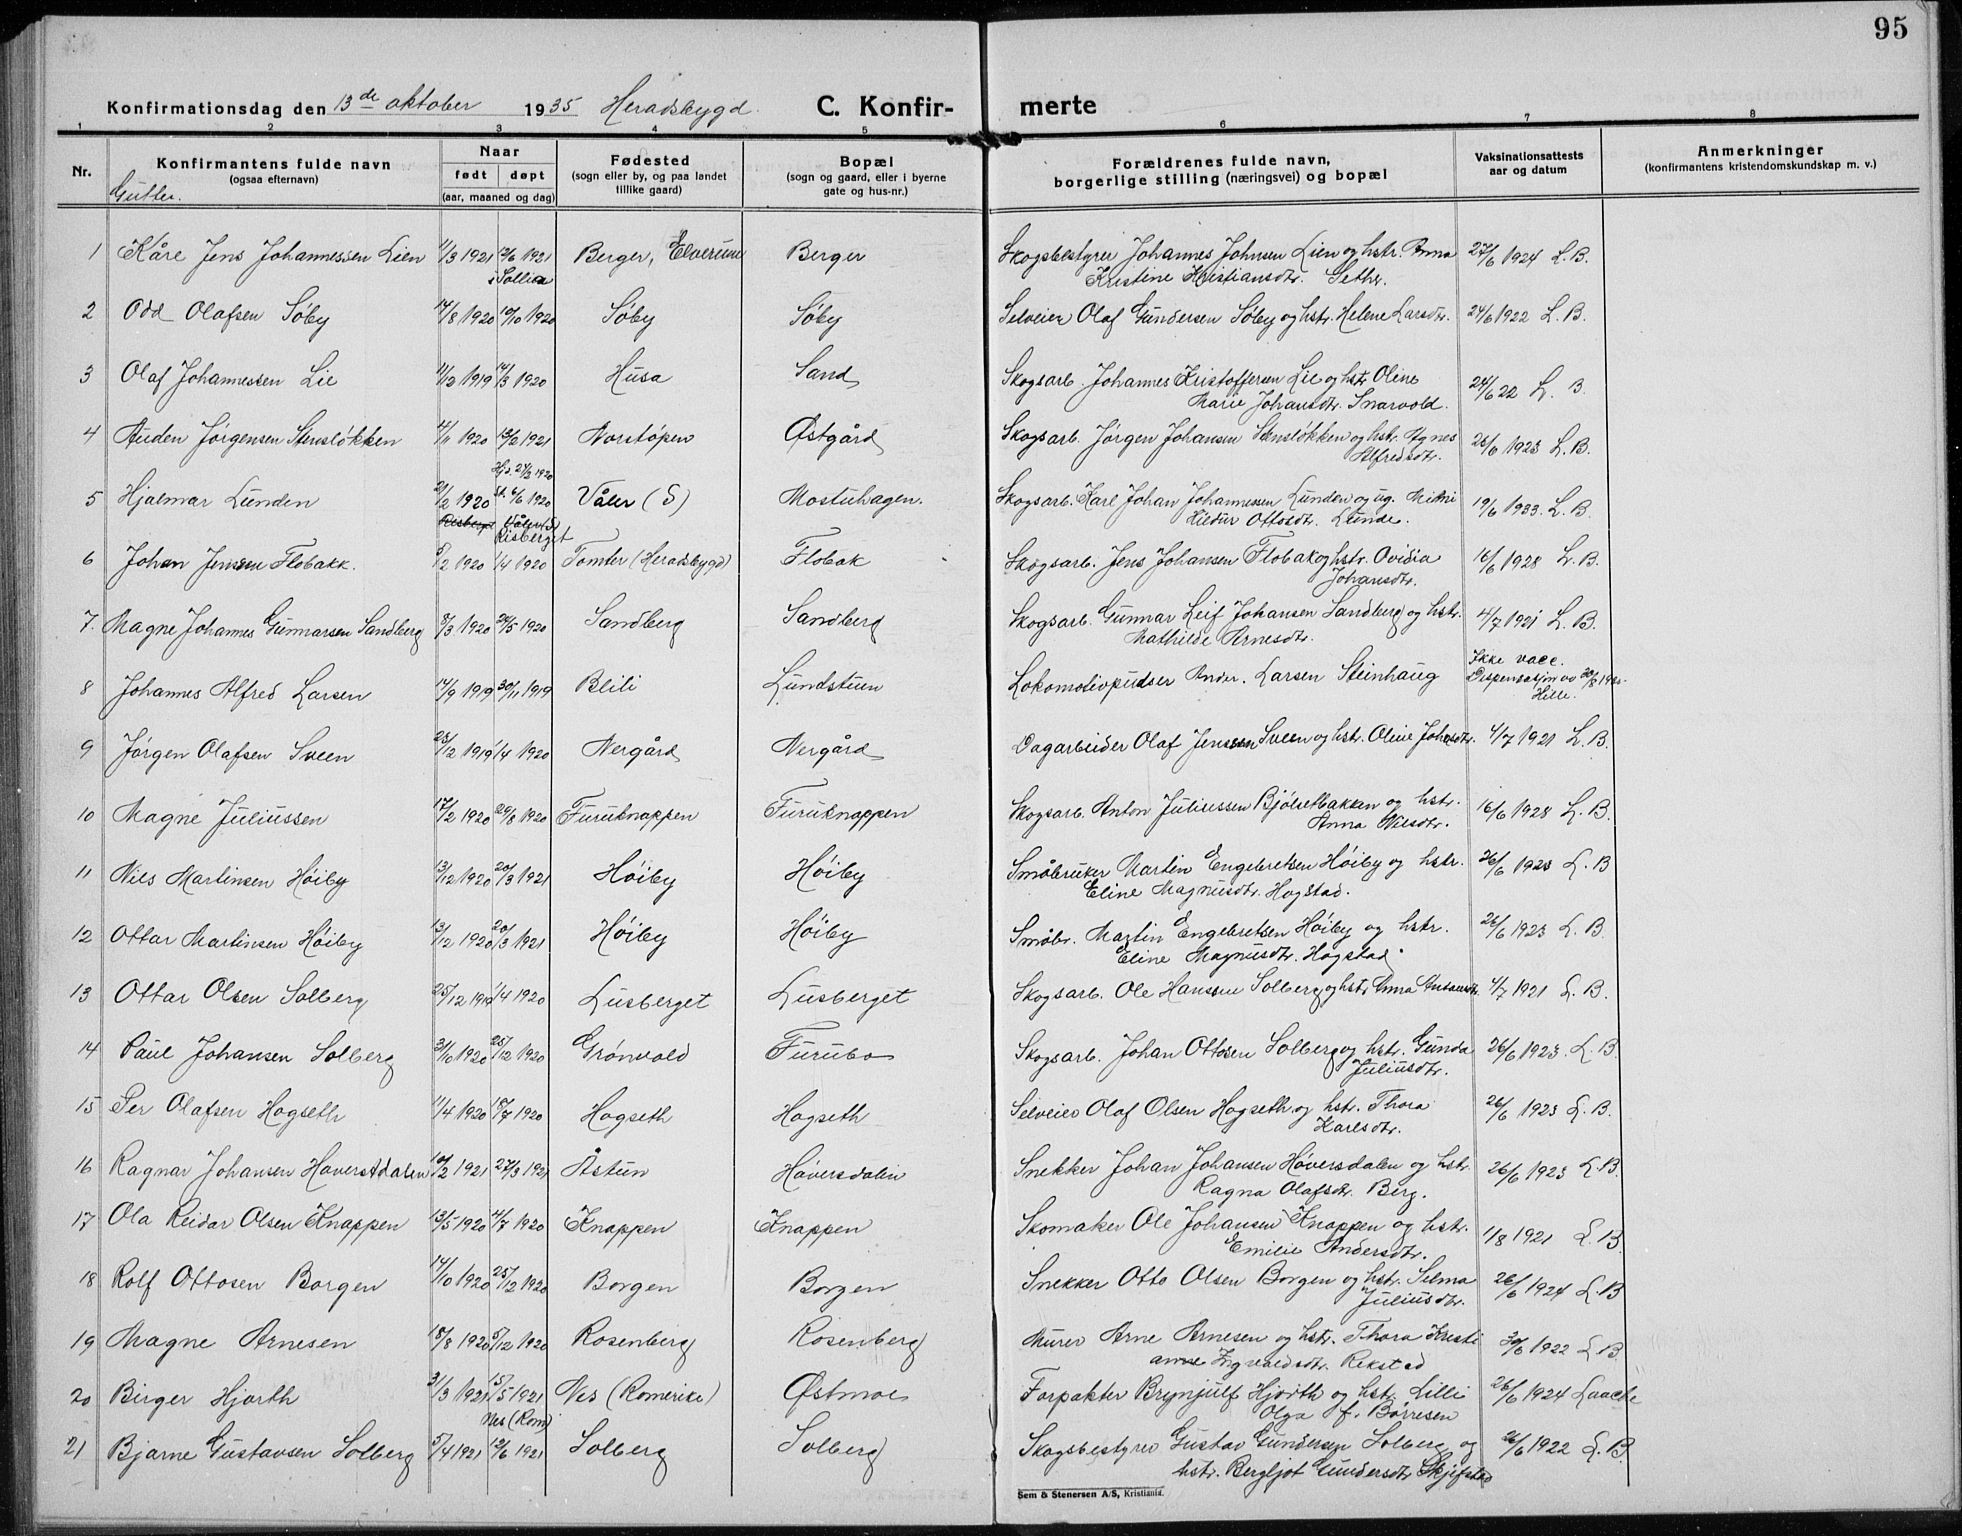 95
Konfirmationsdag den 13de oktober 1935 Heradsbygd. C. Konfirmerte
1 2 3 4 5 6 7 8
Nr. Konfirmantens fulde navn (ogsaa efternavn) Naar født døpt (aar, maaned og dag) Fødested (sogn eller by, og paa landet tillike gaard) Bopæl (sogn og gaard, eller i byerne gate og hus-nr.) Forældrenes fulde navn, borgerlige stilling (næringsvei) og bopæl Vaksinationsattests aar og datum Anmerkninger (konfirmantens kristendomskundskap m. v.)
Gutter.
1 Kåre Jens Johannessen Lien 11/3 1921 12/6 1921 Berger, Elverum Berger Skogsbestyrer Johannes Johnsen Lien og hstr. Anna 27/6 1924 L.B.
i Sollia Kristine Kristiansdtr. Sether.
2 Odd Olafsen Søby 14/8 1920 10/10 1920 Søby Søby Selveier Olaf Gundersen Søby og hstr. Helene Larsdtr. 24/6 1922 L.B.
3 Olaf Johannessen Lie 11/12 1919 14/3 1920 Husa Sand Skogsarb. Johannes Kristoffersen Lie og hstr. Oline 24/6 22 L. B
Marie Johansdtr. Snarvold.
4 Auden Jørgensen Stensløkken 4/11 1920 1921 Norstøpen Østgård Skogsarb. Jørgen Johansen Stensløkken og hstr. Agnes 26/6 1923 L.B.
Alfredsdtr.
Hjd. 21/2 1920
5 Hjalmar Lunden 21/2 1920 St. 6/6 1920 Våler (S) Mostuhagen. Skogsarb. Karl Johan Johannessen Lunden og ug. Minni 19/6 1933. L.B.
Risberget Våler (S) Hildur Ottosdtr. Lunde.
Risberget
6 Johan Jenssen Flobakk. 5/2 1920 1/4 1920 Tomter (Heradsbygd) Flobak Skogsarb. Jens Johansen Flobak og hstr. Ovidia 16/6 1928 L.B.
Johansdtr.
7. Magne Johannes Gunnarsen Sandberg 8/3 1920 24/5 1920 Sandberg Sandberg Skogsarb. Gunnar Leif Johansen Sandberg og hstr. 4/7 1921 L.B.
Mathilde Arnesdtr.
8 Johannes Alfred Larsen 14/9 1919 30/11 1919 Blili Lundstuen Lokomotivpudser Ander. Larsen Steinhaug Ikke vacc.
Dispensasjon av 30/8
Hille.
9 Jørgen Olafsen Sveen 23/12 1919 1/4 1920 Nergård Nergård Dagarbeider Olaf Jenssen Sveen og hstr. Oline Johsdtr. 4/7 1921 L.B.
10 Magne Juliussen 17/2 1920 29/8 1920 Furuknappen Furuknappen Skogsarb. Anton Juliussen Bjølsetbakken og hstr. 16/6 1928 L.B.
Anna Nilsdtr.
11 Nils Martinsen Høiby 13/12 1920 20/3 1921 Høiby Høiby Småbruker Martin Engebretsen Høiby og hstr. 26/6 1923 L.B
Eline Magnusdtr. Hogstad.
12 Ottar Martinsen Høiby 13/12 1920 20/3 1921 Høiby Høiby Småbr. Martin Engebretsen Høiby og hstr. 26/6 1923 L.B.
Eline Magnusdtr. Hogstad.
13 Ottar Olsen Solberg 25/12 1919 1/4 1920 Lusberget Lusberget Skogsarb. Ole Hanssen Solberg og hstr. Anna Antonsdtr. 4/7 1921 L.B.
14 Paul Johansen Solberg 31/10 1920 25/12 1920 Grønvold Furubo Skogsarb. Johan Ottosen Solberg og hstr. Gunda 26/6 1923. L.B.
Juliusdtr.
15 Per Olafsen Hogseth 11/4 1920 18/7 1920 Hogseth Hogseth Selveier Olaf Olsen Hogseth og hstr. Thora 26/6 1923 L.B.
Karlsdtr.
16 Ragnar Johansen Haverstdalen 10/2 1921 27/3 1921 Åstun Høversdalen Snekker Johan Johansen Høversdalen og hstr. 26/6 1923 L.B.
Ragna Olafsdtr. Berg.
17 Ola Reidar Olsen Knappen 13/5 1920 4/7 1920 Knappen Knappen Skomaker Ole Johansen Knappen og hstr. 1/8 1921 L.B.
Emilie Andersdtr.
18 Rolf Ottosen Borgen 14/10 1920 25/12 1920 Borgen Borgen Snekker Otto Olsen Borgen og hstr. Selma 26/6 1924 L.B
Juliusdtr.
19 Magne Arnesen 18/8 1920 5/12 1920 Rosenberg Rosenberg Murer Arne Arnesen og hstr. Thora Kristi 30/6 1922 L.B.
anne Ingvaldsdtr. Rekstad
20 Birger Hjorth 31/3 1921 15/5 1921 Nes (Romerike) Østmoe Forpakter Brynjulf Hjorth og hst. Lilli 26/6 1924 Laache
Nes (Rom) Olga f. Børresen
21 Bjarne Gustavsen Solberg 5/4 1921 12/6 1921 Solberg Solberg Skogsbestyrer Gustav Gundersen Solberg og 26/6 1922 L.B.
hstr. Bergljot Gundersdtr Skjefstad
Sem & Stenersen A/S, Kristiania.